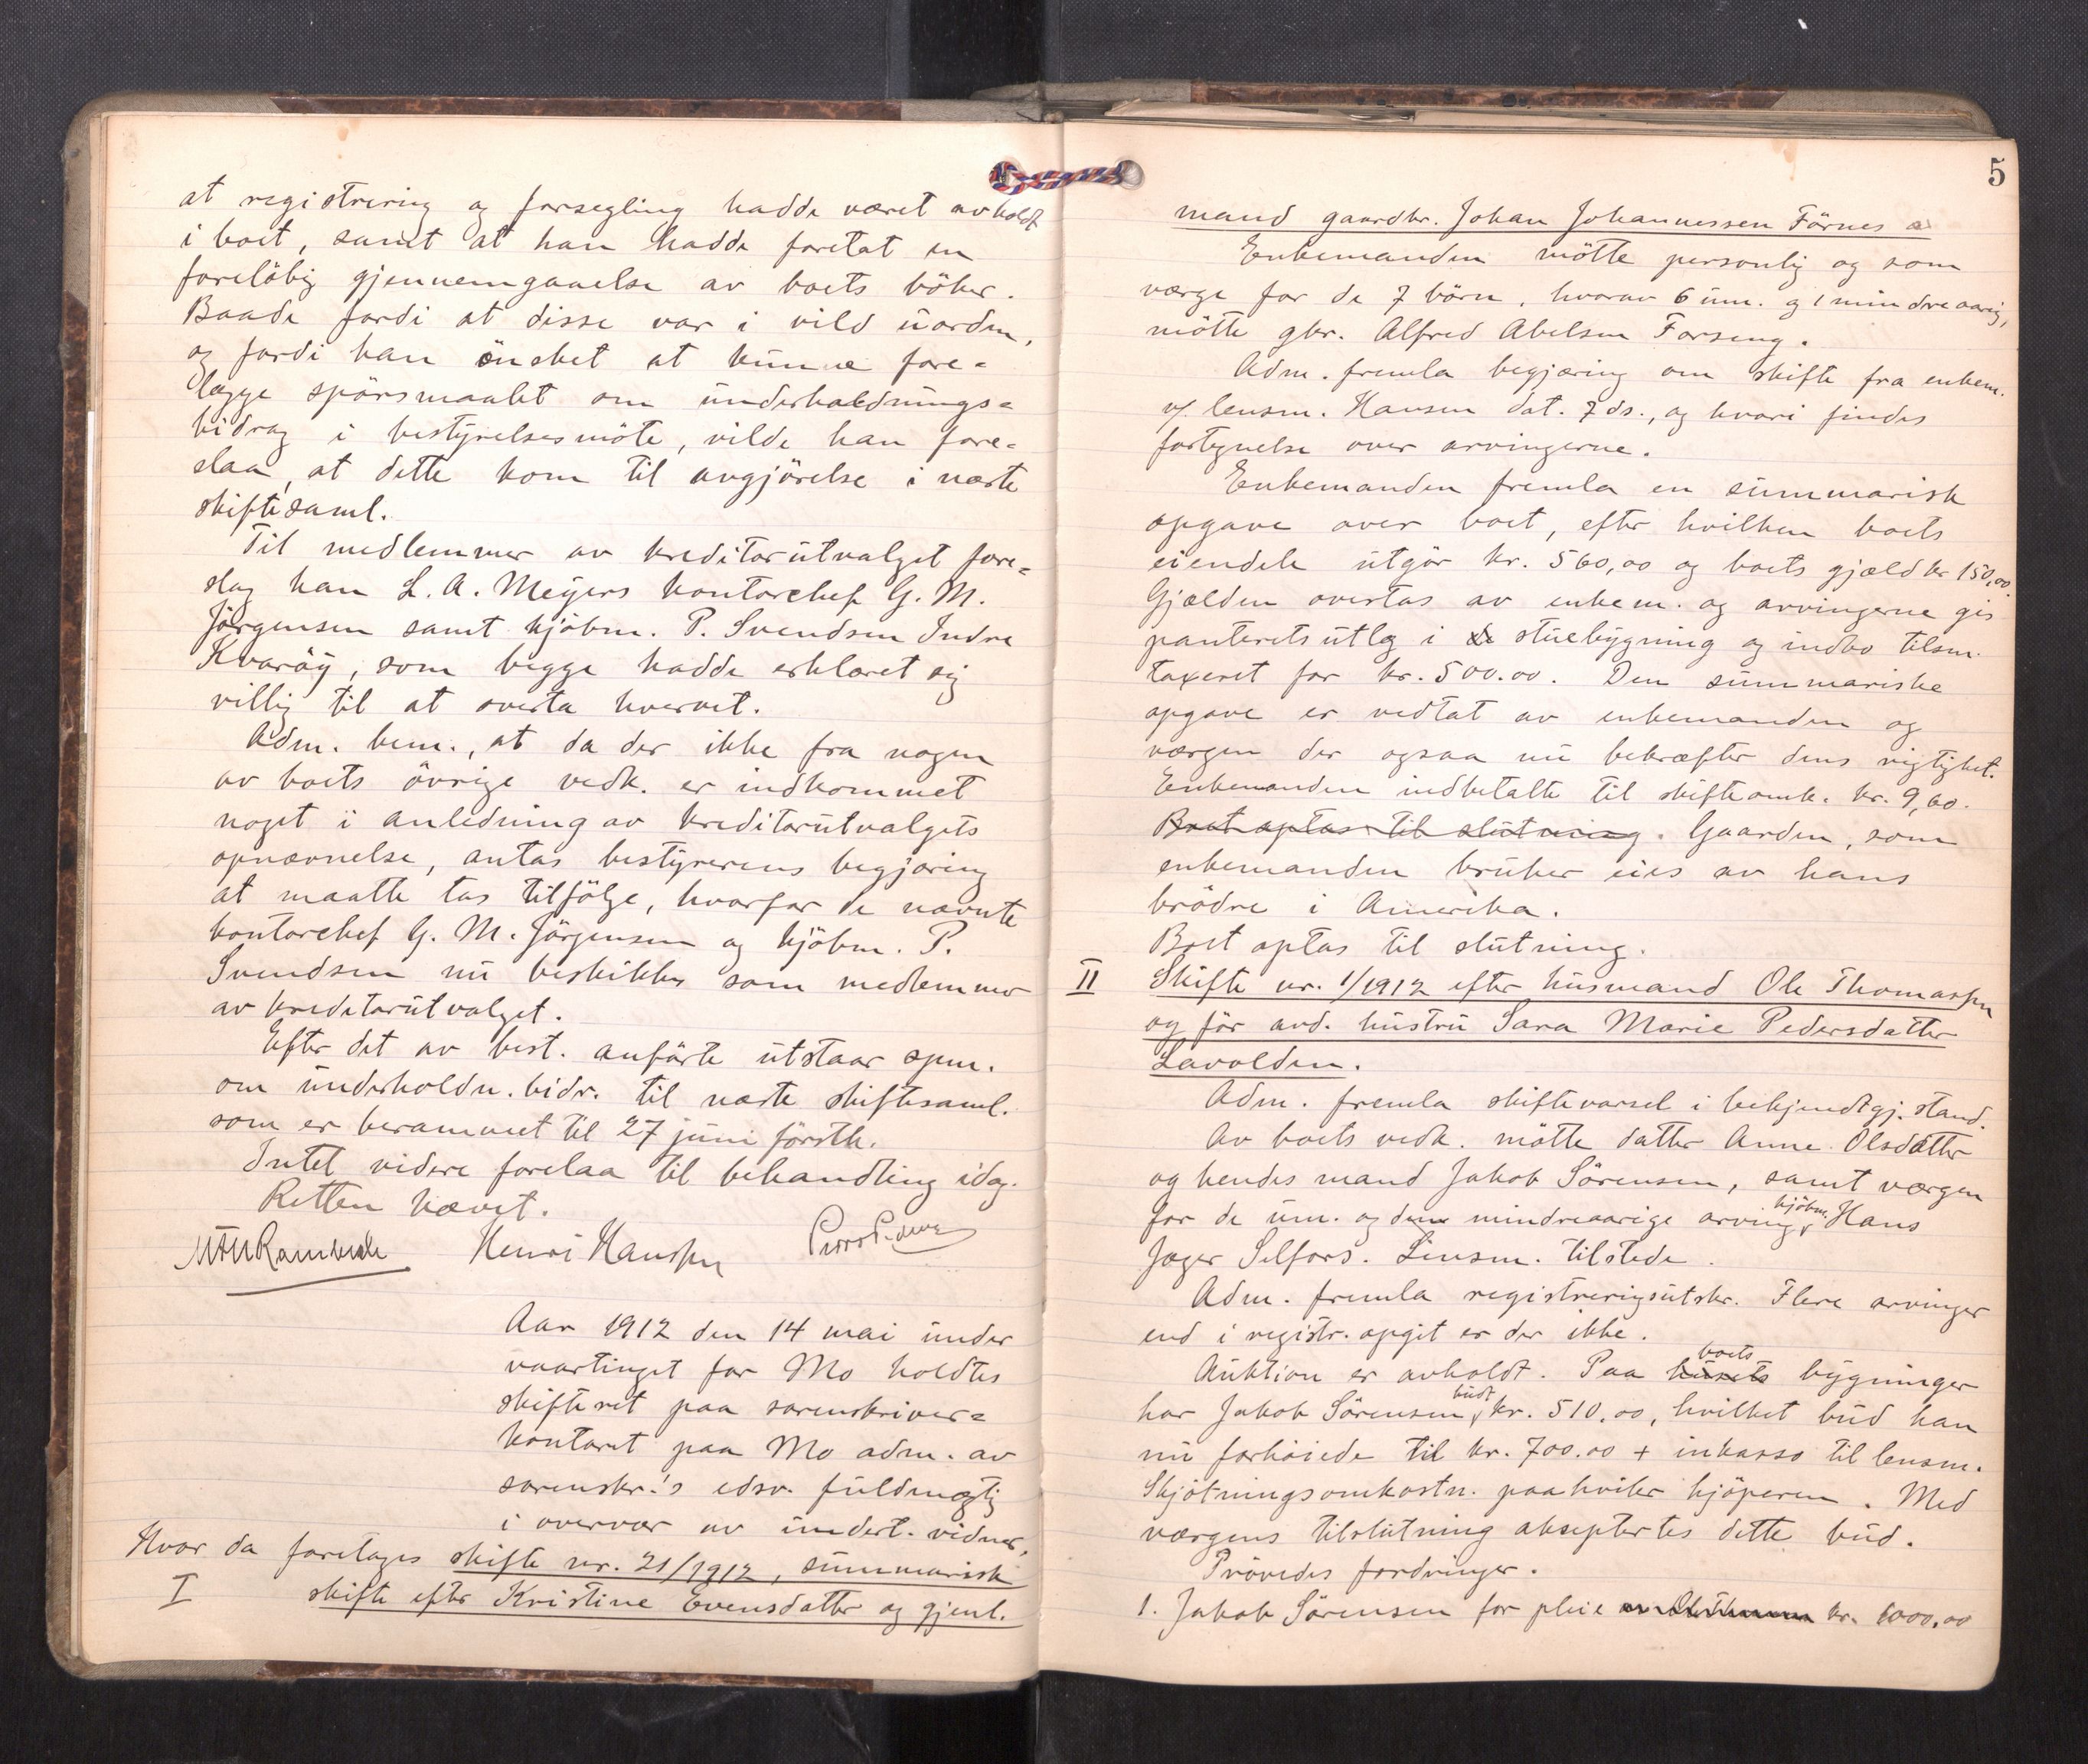 at registrering og forsegling hadde været avholdt
i boet, samt at han hadde foretat en
foreløbig gjennemgaaelse av boets böker.
Baade fordi at disse var i vild uorden,
og fordi han önsket at kunne fore-
lægge spörsmaalet om underholdnings-
bidrag i bestyrelsesmöte, vilde han fore-
slaa, at dette kom til avgjörelse i næste
skiftesaml.
Til medlemmer av kreditorutvalget fore-
slog han L. A. Meyers kontorchef G. M.
Jörgensen samt kjöbm. P. Svendsen Indre
Kvaröy, som begge hadde erklæret sig
villig til at overta hvervet.
Adm. bem., at da der ikke fra nogen
av boets övrige vedk. er indkommet
noget i anledning av kreditorutvalgets
opnævnelse, antas bestyrerens begjæring
at maatte tas tilfölge, hvorfor de nævnte
kontorchef G. M. Jörgensen og kjöbm. P.
Svendsen nu beskikkes som medlemmer
av kreditorutvalget.
Efter det av best. anförte utstaar spm.
om underholdn.bidr. til næste skiftesaml.
som er berammet til 27 juni förstk.
Intet videre forelaa til behandling idag.
Retten hævet.
Henri Hanssen
Aar 1912 den 14 mai under
vaartinget for Mo holdtes
skifteret paa sorenskriver-
kontoret paa Mo adm. av
sorenskr.'s edsv. fuldmægtig
i overvær av undert. vidner,
Hvor da foretoges skifte nr. 21/1912, summarisk
I skifte efter Kristine Evensdatter og gjenl.
5
mand gaardbr. Johan JohannessenFörnes
Enkemanden mötte personlig og som
værge for de 7 börn, hvorav 6 um. og 1 mindreaarig,
mötte gbr. Alfred Abelsen Forseng.
Adm. fremla begjæring om skifte fra enkem.
v/ lensm. Hansen dat. 7 ds., og hvori findes
fortegnelse over arvingerne.
Enkemanden fremla en summarisk
opgave over boet, efter hvilken boets
eiendele utgör kr. 560,00 og boets gjæld kr 150,00.
Gjælden overtas av enkem. og arvingerne gis
panteretsutlæg i stuebygning og indbo tilsm.
taxeret for kr. 500.00. Den summariske
opgave er vedtat av enkemanden og
værgen der ogsaa nu bekræfter dens rigtighet.
Enkemanden indbetalte til skifteomk. kr. 9,60.
Boet optas til slutning. Gaarden, som
enkemanden bruker eies av hans
brödre i Amerika.
Boet optas til slutning.
II Skifte nr. 1/1912 efter husmand Ole Thomassen
og för avd. hustru Sara Marie Pedersdatter
Lavolden.
Adm. fremla skiftevarsel i bekjendtgj. stand.
Av boets vedk. mötte datter Anne Olsdatter
og hendes mand Jakob Sörensen, samt værgen
for de um. og den mindreaarige arving, kjöbm. Hans
Jager Selfors. Lensm. tilstede.
Adm. fremla registreringsutskr. Flere arvinger
end i registr. opgit er der ikke.
Auktion er avholdt. Paa husets boets bygninger
har Jakob Sörensen budt kr. 510,00, hvilket bud han
nu forhöiede til kr. 700.00 + inkasso til lensm.
Skjötningsomkostn. paahviler kjöperen. Med
værgens tilslutning akseptertes dette bud.
Prövedes fordringer.
1. Jakob Sörensen for pleie kr. 1000,00